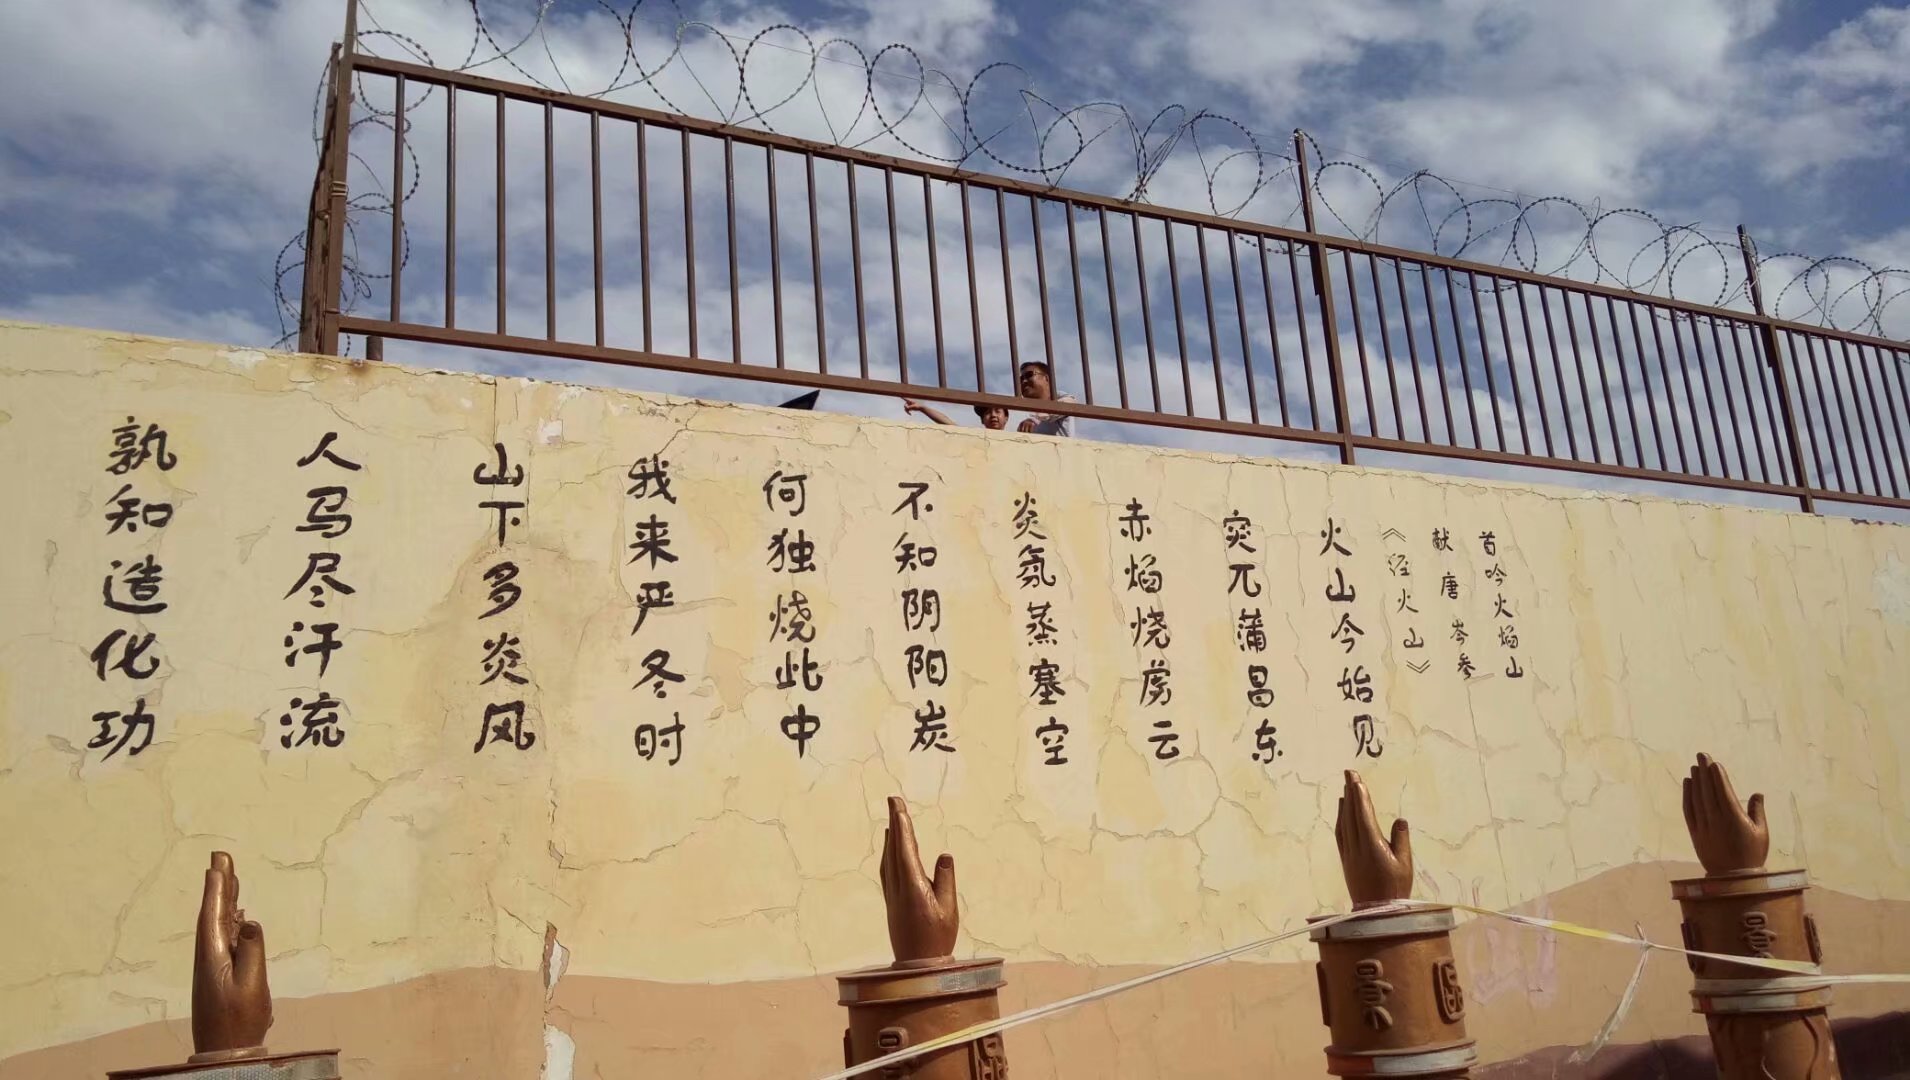 首吟火焰山
献唐岑参
《径火山》
火山今始见
突兀蒲昌东
赤焰烧虏云
炎氛蒸塞空
不知阴阳炭
何独烧此中
我来严冬时
山下多炎风
人马尽汗流
孰知造化功
景区
景